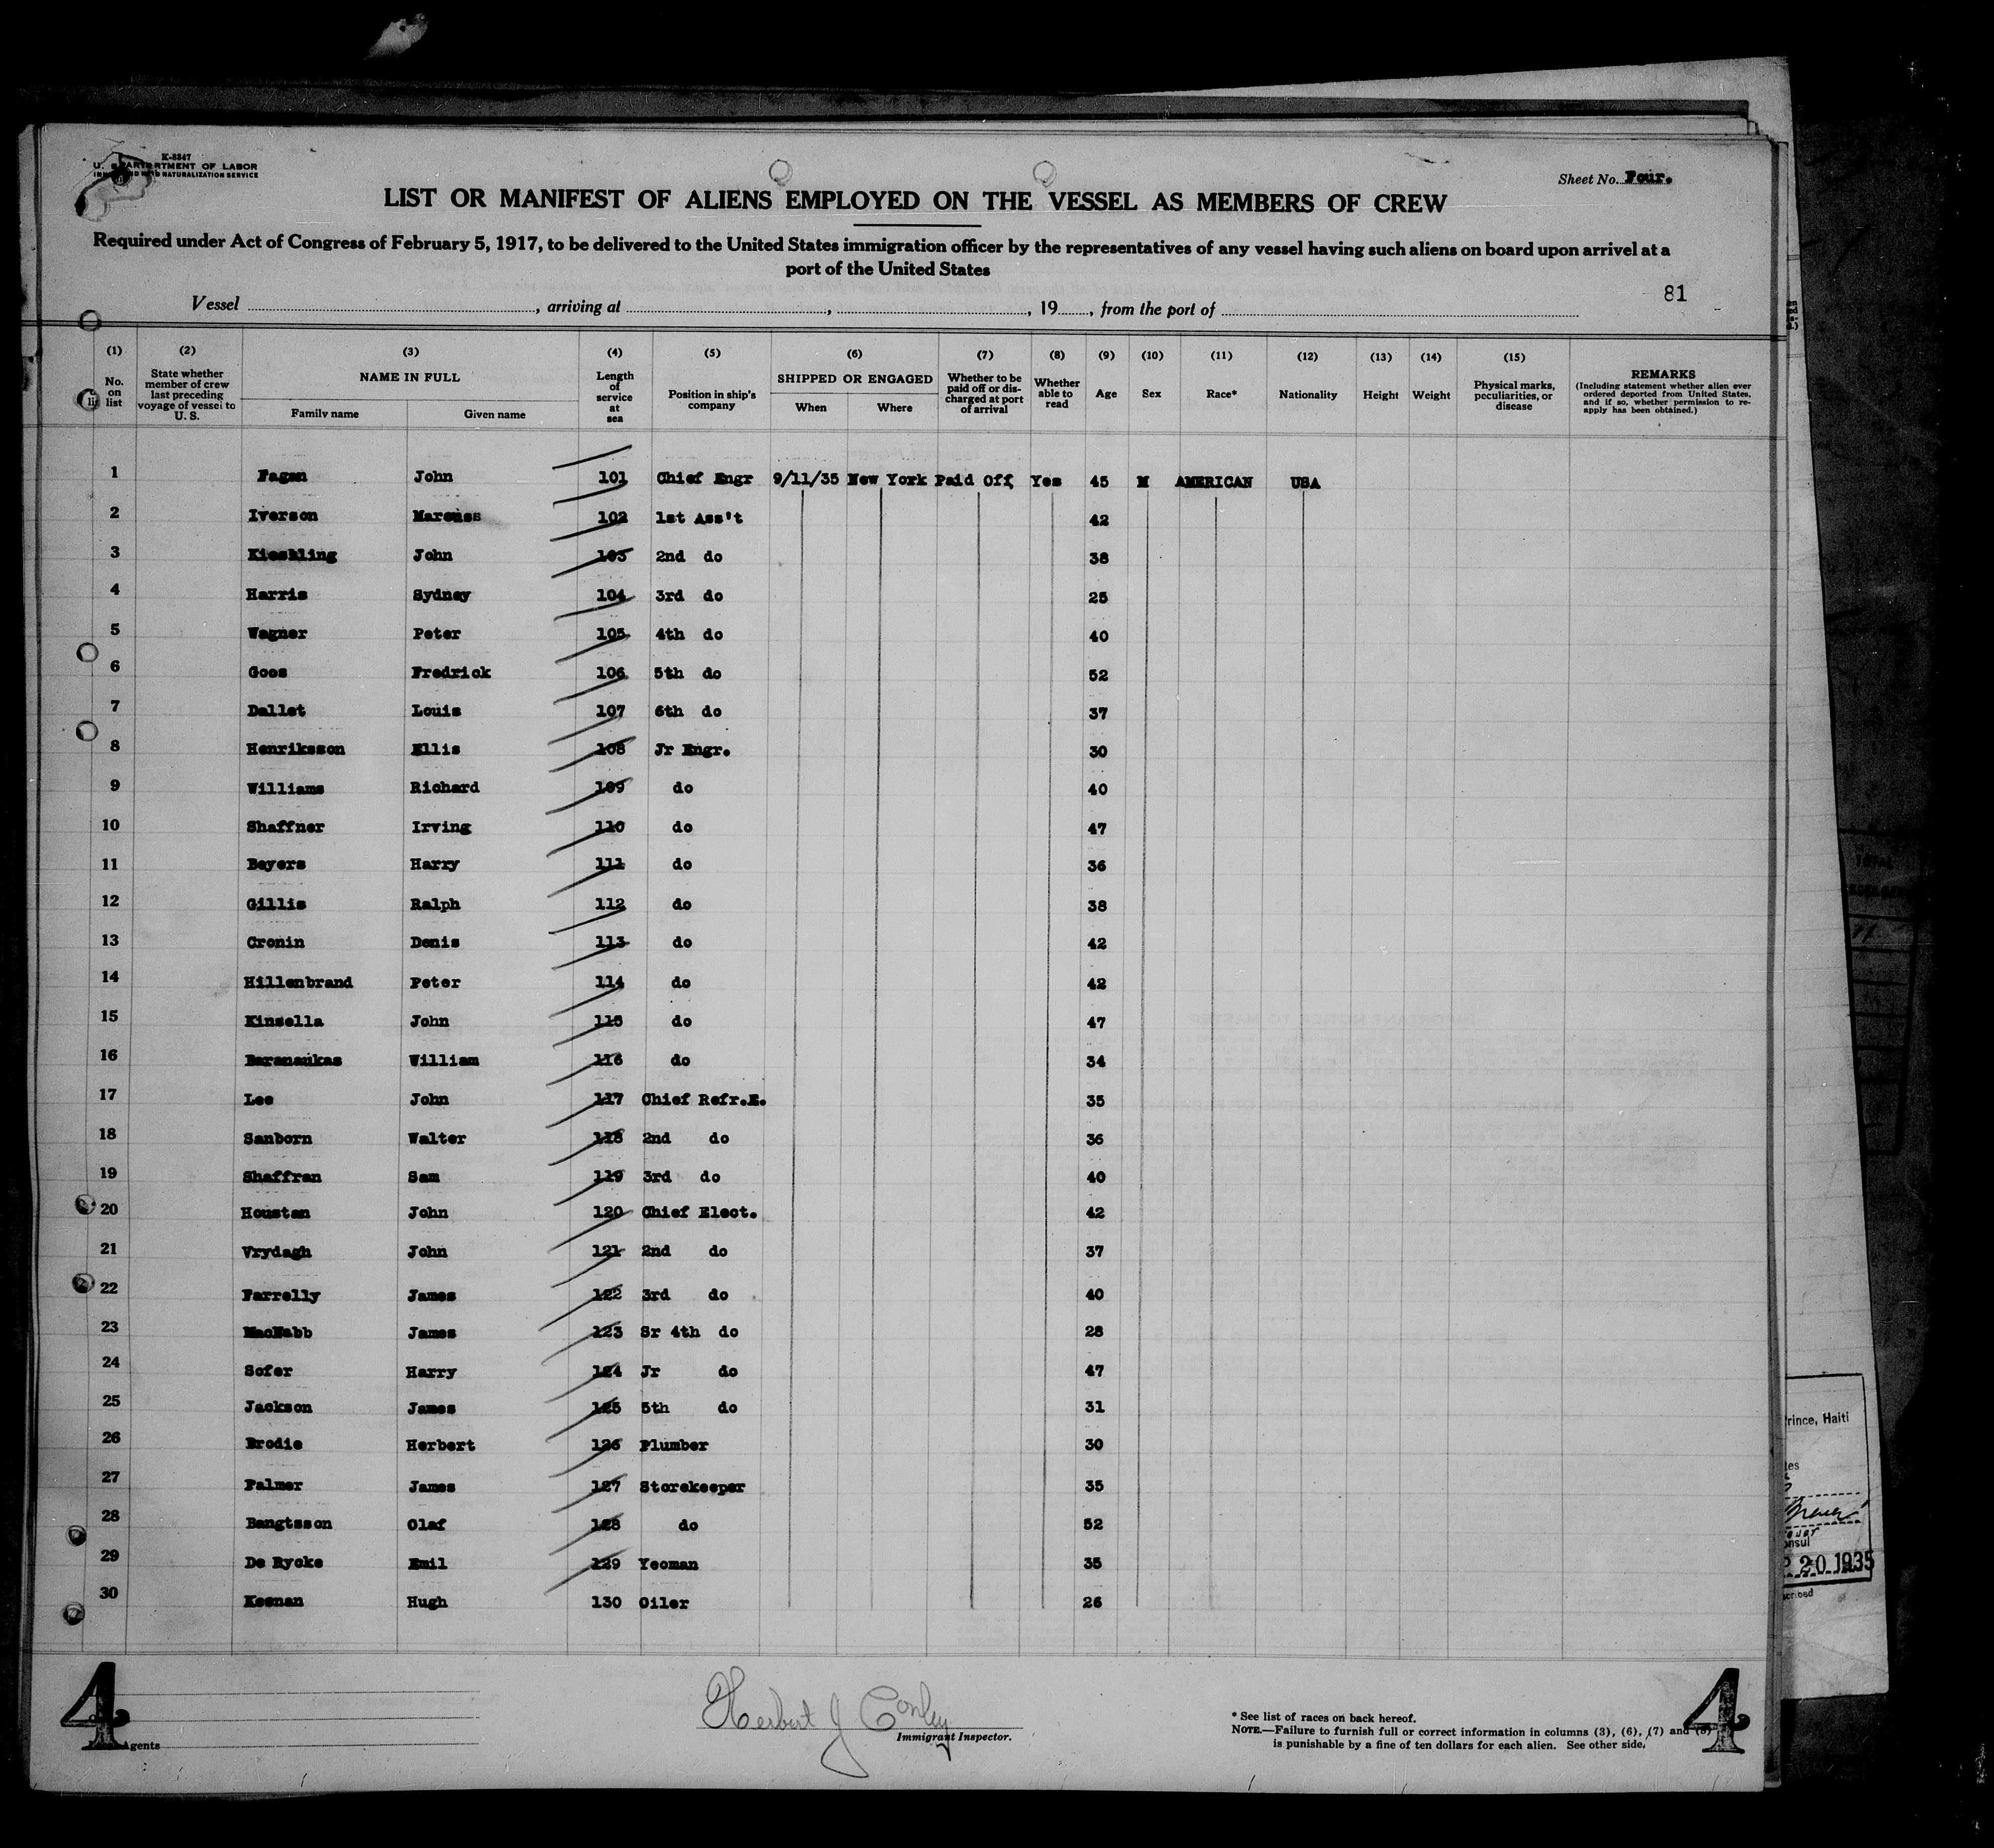 K-8847
U. S. DEPARTMENT OF LABOR
IMMIGRATION AND NATURALIZATION SERVICE
Sheet No. Four.
LIST OR MANIFEST OF ALIENS EMPLOYED ON THE VESSEL AS MEMBERS OF CREW
Required under Act of Congress of February 5, 1917, to be delivered to the United States immigration officer by the representatives of any vessel having such aliens on board upon arrival at a
port of the United States
81
Vessel , arriving at , , 19 , from the port of
(1) (2) (3) (4) (5) (6) (7) (8) (9) (10) (11) (12) (13) (14) (15)
No. on list State whether member of crew last preceding voyage of vessel to U. S. NAME IN FULL Family name Given name Length of service at sea Position in ship's company SHIPPED OR ENGAGED When Where Whether to be paid off or discharged at port of arrival Whether able to read Age Sex Race* Nationality Height Weight Physical marks, peculiarities, or disease REMARKS (Including statement whether alien ever ordered deported from United States, and if so, whether permission to re-apply has been obtained.)
1 Fagan John 101 Chief Engr 9/11/35 New York Paid Off Yes 45 M AMERICAN USA
2 Iverson Marcuss 102 1st Ass't 42
3 Kieshling John 103 2nd do 38
4 Harris Sydney 104 3rd do 25
5 Wagner Peter 105 4th do 40
6 Goos Fredrick 106 5th do 52
7 Dallet Louis 107 6th do 37
8 Henriksson Ellis 108 Jr Engr. 30
9 Williams Richard 109 do 40
10 Shaffner Irving 110 do 47
11 Beyers Harry 111 do 36
12 Gillis Ralph 112 do 38
13 Cronin Denis 113 do 42
14 Hillenbrand Peter 114 do 42
15 Kinsella John 115 do 47
16 Baranaukas William 116 do 34
17 Lee John 117 Chief Refr.E. 35
18 Sanborn Walter 118 2nd do 36
19 Shaffran Sam 119 3rd do 40
20 Houstan John 120 Chief Elect. 42
21 Vrydagh John 121 2nd do 37
22 Farrelly James 122 3rd do 40
23 MacNabb James 123 Sr 4th do 28
24 Sofer Harry 124 Jr do 47
25 Jackson James 125 5th do 31
26 Brodie Herbert 126 Plumber 30
27 Palmer James 127 Storekeeper 35
28 Bangtsson Olaf 128 do 52
29 De Rycke Emil 129 Yeoman 35
30 Keenan Hugh 130 Oiler 26
rince, Haiti
20 1935
4
Agents
Herbert J Conley
Immigrant Inspector.
* See list of races on back hereof.
NOTE.—Failure to furnish full or correct information in columns (3), (6), (7) and (8)
is punishable by a fine of ten dollars for each alien. See other side.
4